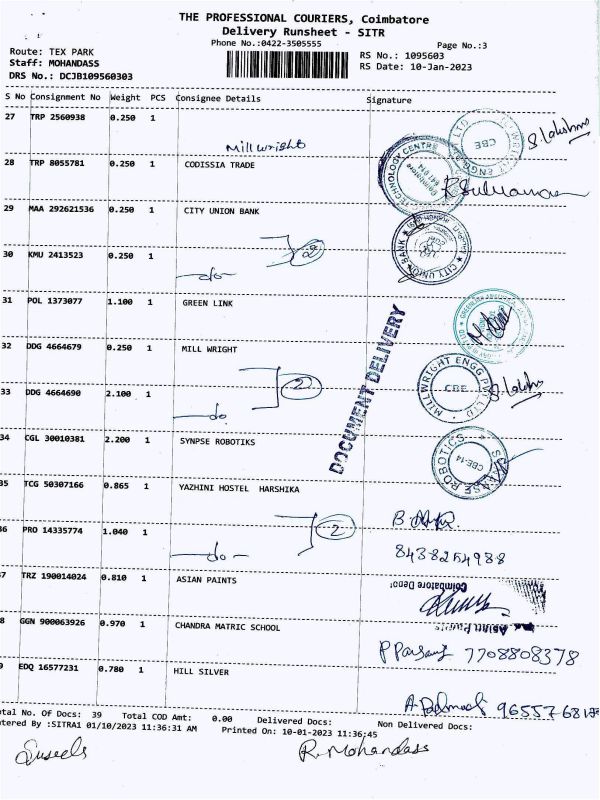 THE PROFESSIONAL COURIERS, Coimbatore
Delivery Runsheet - SITR
Phone No.:0422-3505555
Page No.:3
Route: TEX PARK
Staff: MOHANDASS
DRS No.: DCJB109560303
RS No.: 1095603
RS Date: 10-Jan-2023
S No Consignment No Weight PCS Consignee Details Signature
27 TRP 2560938 0.250 1
Mill wright
28 TRP 8055781 0.250 1 CODISSIA TRADE
29 MAA 292621536 0.250 1 CITY UNION BANK
30 KMU 2413523 0.250 1
-do- 2
31 POL 1373077 1.100 1 GREEN LINK
32 DDG 4664679 0.250 1 MILL WRIGHT
33 DDG 4664690 2.100 1
-do- 2
34 CGL 30010381 2.200 1 SYNPSE ROBOTIKS
35 TCG 50307166 0.865 1 YAZHINI HOSTEL HARSHIKA
36 PRO 14335774 1.040 1
-do- 2
8438254988
37 TRZ 190014024 0.810 1 ASIAN PAINTS
38 GGN 900063926 0.970 1 CHANDRA MATRIC SCHOOL
7708808378
39 EDQ 16577231 0.780 1 HILL SILVER
DOCUMENT DELIVERY
CBE
MILLWRIGHT ENGG PVT LTD
CBE
CITY UNION BANK
ROBOTICS
CBE-14
Coimbatore Depot
Asian Paints
Total No. Of Docs: 39 Total COD Amt: 0.00 Delivered Docs: Non Delivered Docs:
Entered By :SITRA1 01/10/2023 11:36:31 AM Printed On: 10-01-2023 11:36:45
R. Mohandass